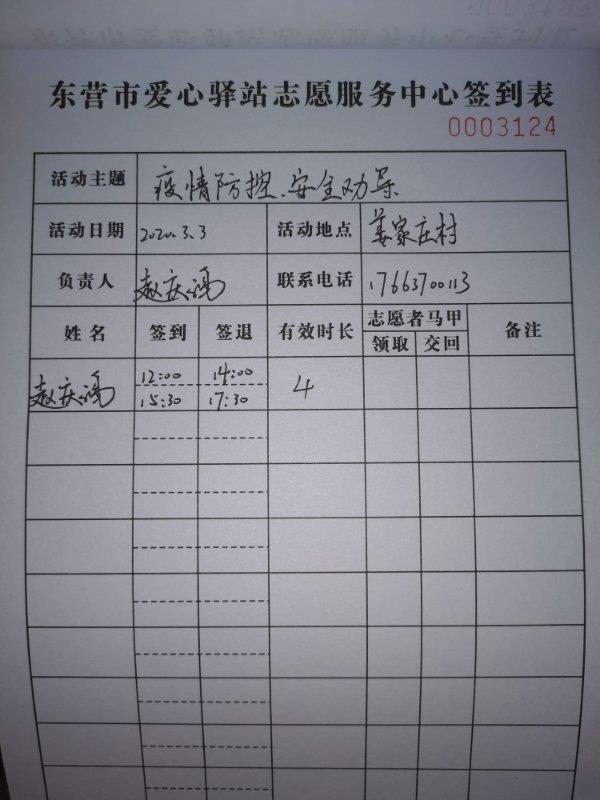 东营市爱心驿站志愿服务中心签到表
0003124
活动主题 疫情防控、安全劝导
活动日期 2020.3.3 活动地点 姜家庄村
负责人 赵庆鸿 联系电话 17663700113
姓名 签到 签退 有效时长 志愿者马甲 备注
领取 交回
赵庆鸿 12:00 14:00 4
15:30 17:30